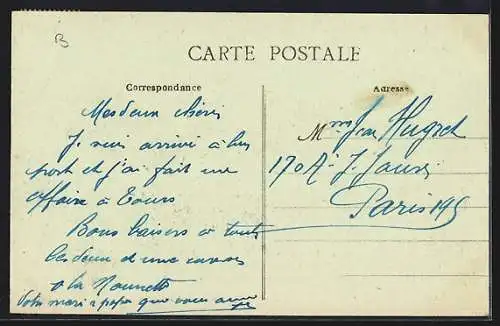 B
CARTE POSTALE
Correspondance
Mes deux chéris
Je suis arrivé à bon
port et j'ai fait une
affaire à Tours
Bons baisers à toutes
les deux et une
à la Nounette
Votre mari & papa que vous aime
Adresse
Mme Jean
170 Av. J. Jaurès
Paris 19e